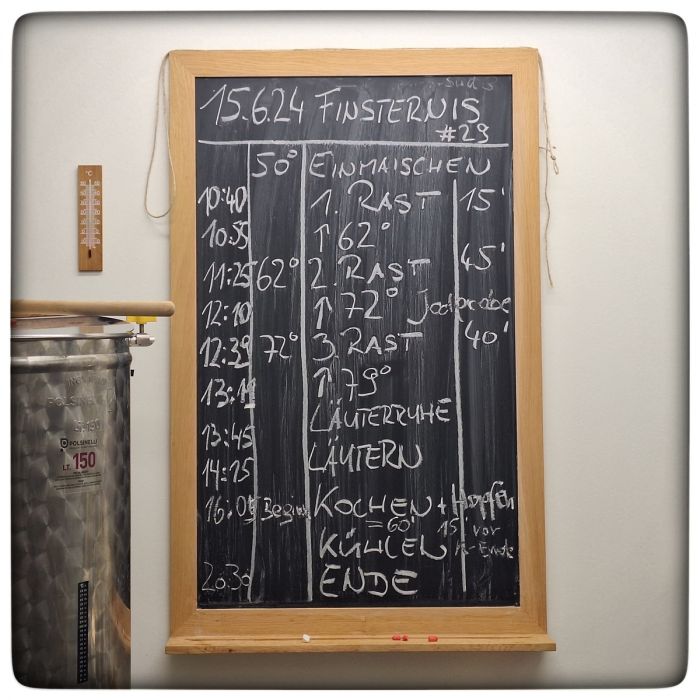 15.6.24 FINSTERNIS
#29
50° EINMAISCHEN
10:40 1. RAST 15'
10:55 ↑ 62°
11:25 62° 2. RAST 45'
12:10 ↑ 72° Jodprobe
12:39 72° 3. RAST 40'
↑ 79°
LÄUTERRUHE
13:45
14:25 LÄUTERN
Beginn KOCHEN + Hopfen
=60' 15' vor
KÜHLEN Ende
20:30 ENDE
°C
POLSINELLI
POLSINELLI
LT. 150